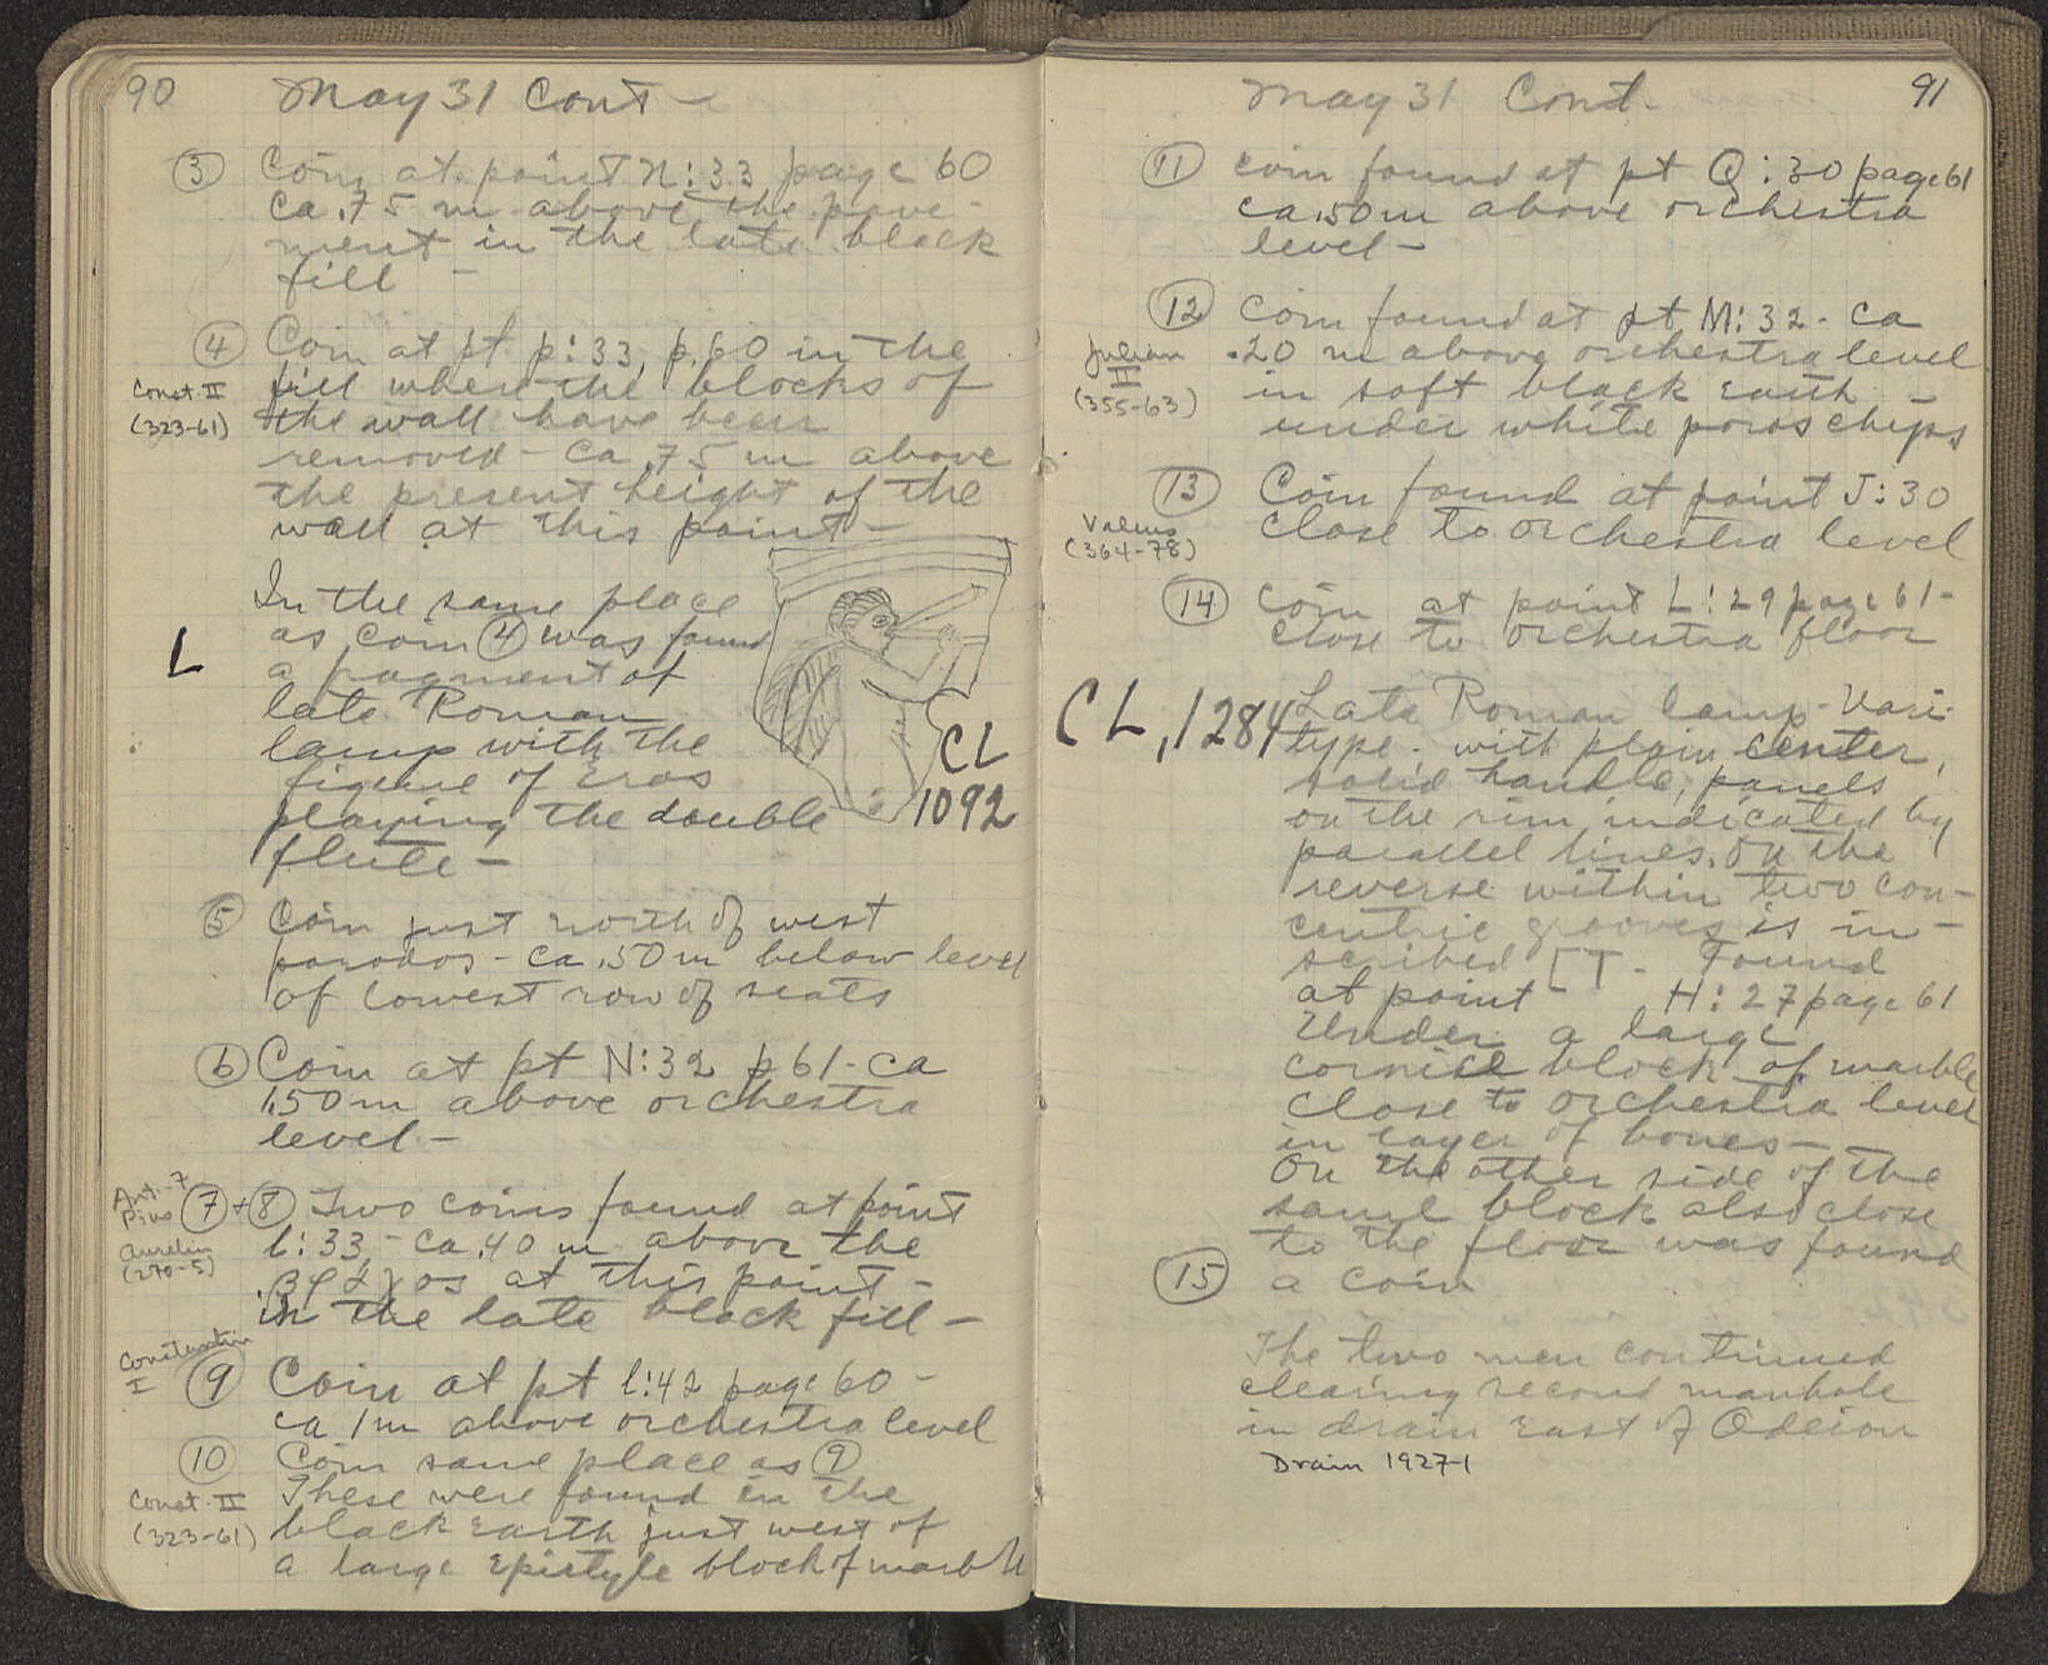 90
May 31 Cont -
③ Coin at point N:33 page 60
ca .75 m above the pave-
ment in the late black
fill -
④ Coin at pt p:33, p.60 in the
Const. II
(323-61)
fill where the blocks of
the wall have been
removed - ca .75 m above
the present height of the
wall at this point -
In the same place
as coin ④ was found
L
a fragment of
late Roman
lamp with the
figure of Eros
playing the double
flute -
CL
1092
⑤ Coin just north of west
parodos - ca .50 m below level
of lowest row of seats
⑥ Coin at pt N:32 p 61 - ca
1.50 m above orchestra
level -
Ant. Pius ?
Aurelian
(270-5)
⑦ + ⑧ Two coins found at point
l:33, - ca .40 m above the
at this point -
in the late black fill -
Constantin
I
⑨ Coin at pt l:42 page 60 -
ca 1 m above orchestra level
⑩ Coin same place as ⑨
Const. II
(323-61)
These were found in the
black earth just west of
a large Epistyle block of marble
91
May 31 Cont.
⑪ coin found at pt Q:30 page 61
ca .50 m above orchestra
level -
⑫ Coin found at pt M:32 - ca
Julian
II
(355-63)
.20 m above orchestra level
in soft black earth -
under white poros chips
⑬ Coin found at point J:30
Valens
(364-78)
close to orchestra level
⑭ Coin at point L:29 page 61 -
close to orchestra floor
CL, 1284
Late Roman lamp - Vari
type - with plain center,
solid handle, panels
on the rim indicated by
parallel lines. On the
reverse within two con-
centric grooves is in-
scribed [T - Found
at point H:27 page 61
Under a large
cornice block of marble
close to orchestra level
in layer of bones -
On the other side of the
same block also close
to the floor was found
⑮ a coin
The two men continued
clearing second manhole
in drain East of Odeion
Drain 1927-1